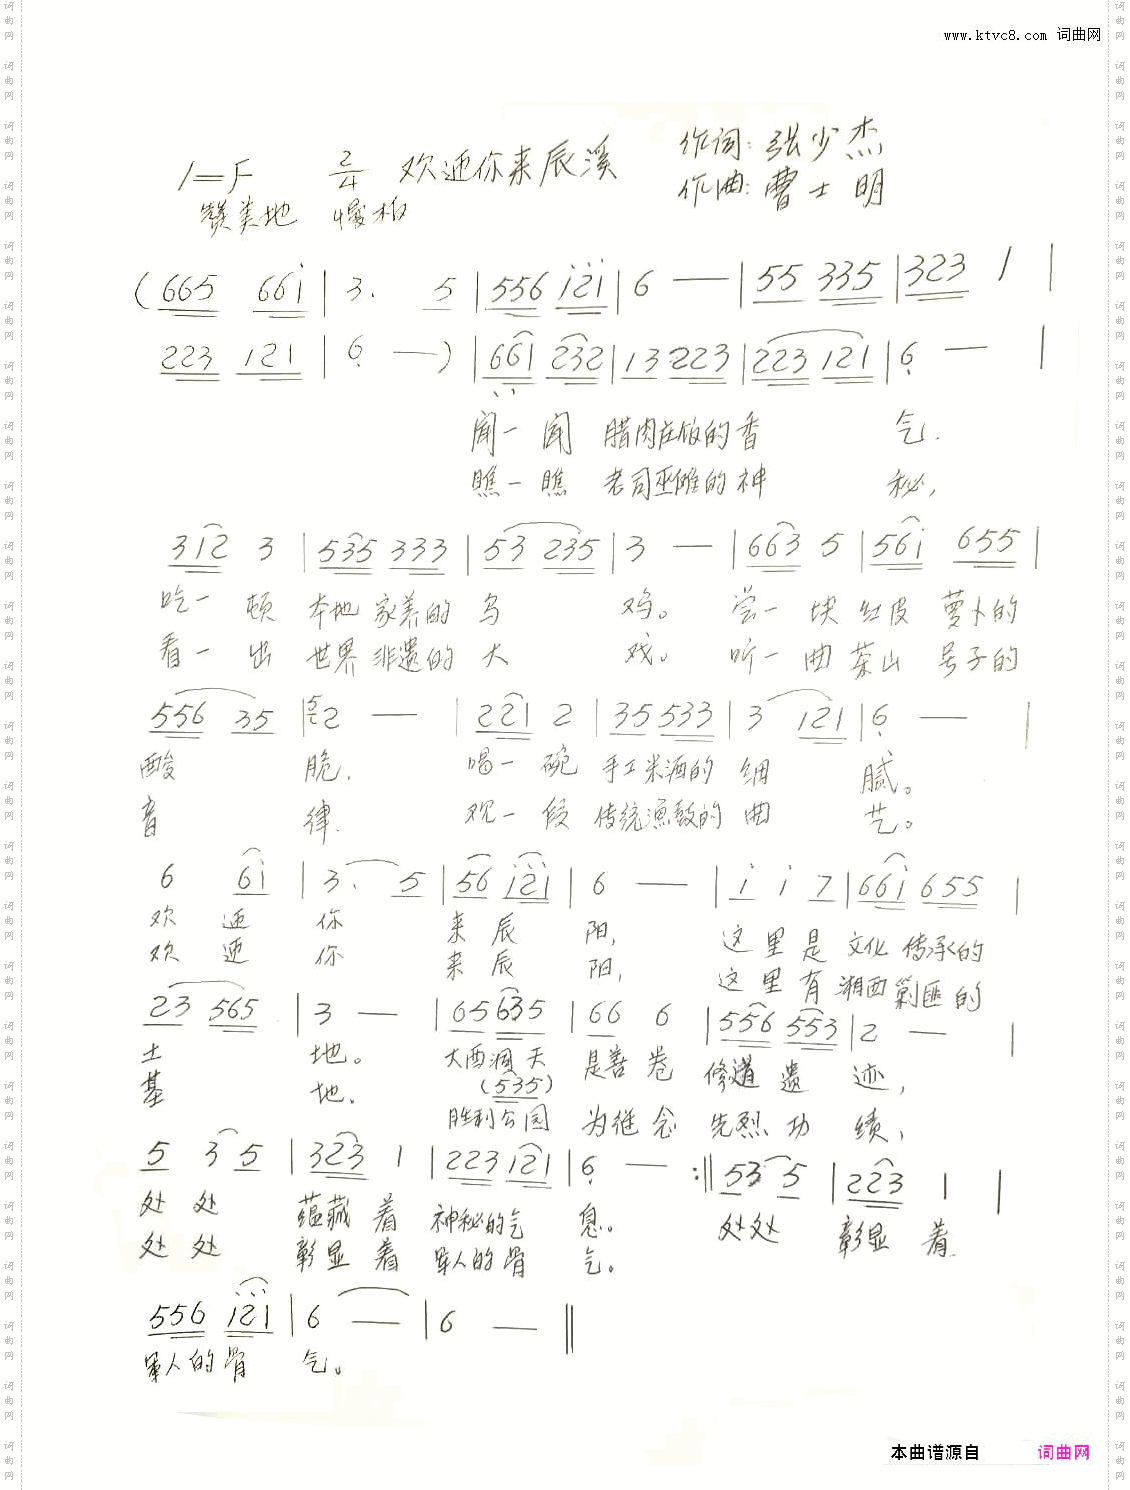 www.ktvc8.com 词曲网
1=F 2/4 欢迎你来辰溪 作词：张少杰
赞美地 慢板 作曲：曹士明
(665 661̇ | 3. 5 | 556 1̇2̇1̇ | 6 — | 55 335 | 323 1 |
223 121 | 6̣ —) | 661 232 | 13 223 | 223 121 | 6̣ — |
闻一闻 腊肉庄饭的香 气.
瞧一瞧 老司巫傩的神 秘,
312 3 | 535 333 | 53 235 | 3 — | 663 5 | 561̇ 655 |
吃一顿 本地家养的乌 鸡。尝一块红皮萝卜的
看一出 世界非遗的大 戏。听一曲茶山号子的
556 35 | 2 — | 221 2 | 35 533 | 3 121 | 6̣ — |
酸 脆. 喝一碗 手工米酒的细 腻。
音 律. 观一段 传统渔鼓的曲 艺。
6 61̇ | 3. 5 | 56 1̇2̇1̇ | 6 — | 1̇ 1̇ 7 | 661̇ 655 |
欢迎你 来辰 阳, 这里是文化传承的
欢迎你 来辰 阳, 这里有湘西剿匪的
23 565 | 3 — | 65 635 | 66 6 | 556 553 | 2 — |
土 地。 大酉洞天 是善卷 修道遗 迹,
基 地. (535)
胜利公园 为继念 先烈功 绩,
5 3 5 | 323 1 | 223 121 | 6̣ — :‖ 53 5 | 223 1 |
处处 蕴藏着 神秘的气 息。 处处 彰显着
处处 彰显着 军人的骨 气。
556 1̇2̇1̇ | 6 — | 6 — ‖
军人的骨 气。
本曲谱源自 词曲网